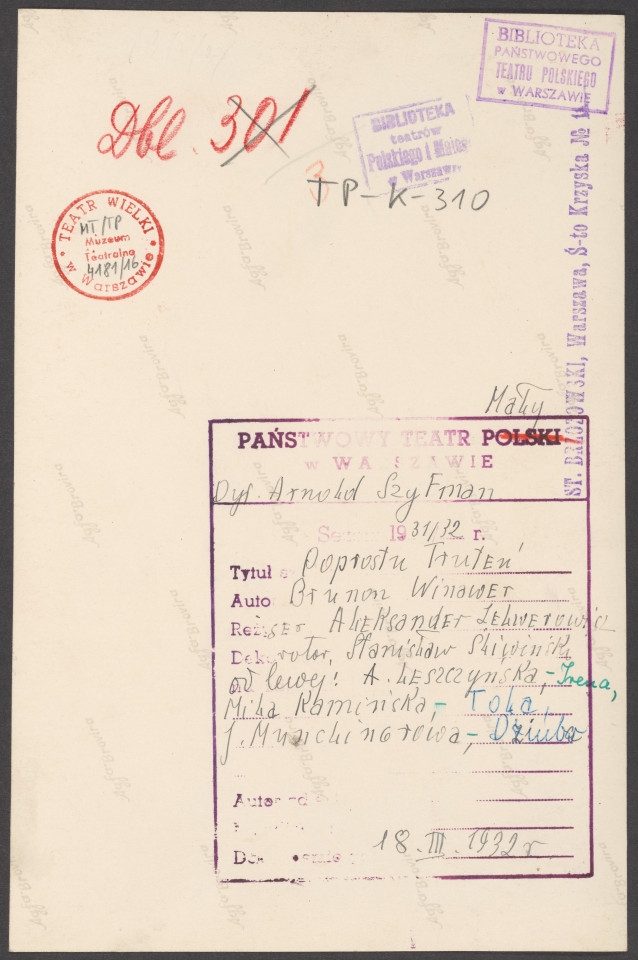 BIBLIOTEKA
PAŃSTWOWEGO
TEATRU POLSKIEGO
w WARSZAWIE
Dbl. 301
BIBLIOTEKA
teatrów
Polskiego i Małego
w Warszawie
TP-K-310
TEATR WIELKI
MT/TP
Muzeum
Teatralne
4181/16
w Warszawie
ST. BRZOZOWSKI, Warszawa, Ś-to Krzyska №
Mały
PAŃSTWOWY TEATR POLSKI
w WARSZAWIE
Dyr. Arnold Szyfman
Sezon 1931/32 r.
Tytuł Poprostu Truteń
Autor Brunon Winawer
Reżyser Aleksander Zelwerowicz
Dekorator, Stanisław Śliwiński
od lewej: A. Leszczyńska, - Irena,
Mika Kamińska, - Tola,
J. Munchingrowa, - Dziuba
Autor
18. III. 1932 r
Agfa Brovira